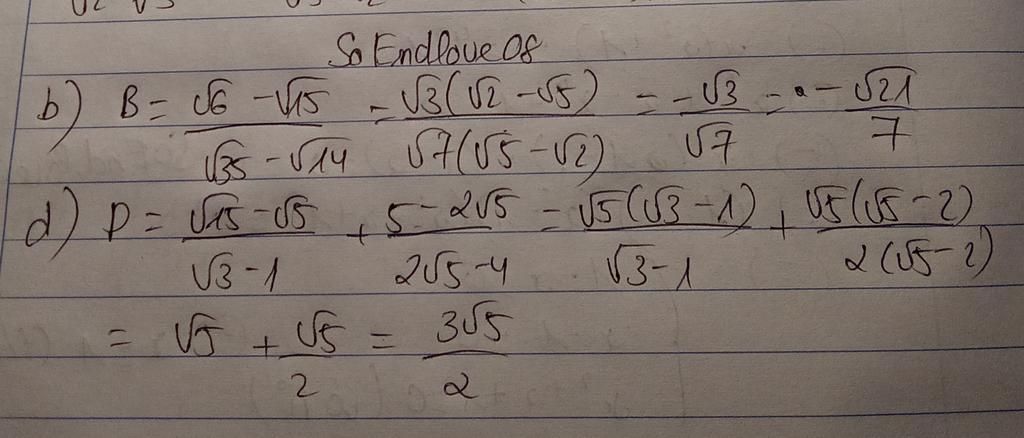 So Endlove08
b) B = (√6 - √15)/(√35 - √14) = √3(√2 - √5)/√7(√5 - √2) = -√3/√7 = - √21/7
d) D = (√15 - √5)/(√3 - 1) + (5 - 2√5)/(2√5 - 4) = √5(√3 - 1)/(√3 - 1) + √5(√5 - 2)/2(√5 - 2)
= √5 + √5/2 = 3√5/2